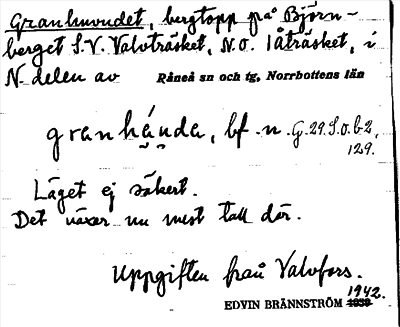 Granhuvudet, bergtopp på Björn-
berget S.V. Valvträsket, N.O. Låträsket, i
N delen av Råneå sn och tg, Norrbottens län
granhánda, bf. n. G.29.S.o.b2,
129.
Läget ej säkert.
Det växer nu mest tall där.
Uppgiften från Valvfors.
1942.
EDVIN BRÄNNSTRÖM 1939